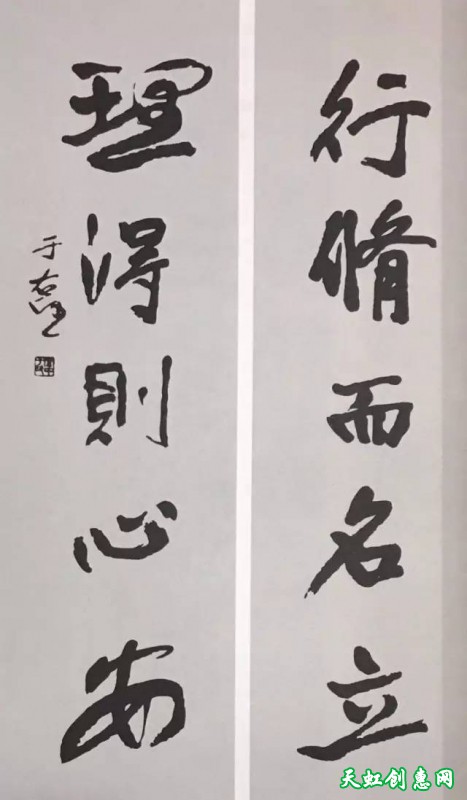 行脩而名立
理得則心安
于右任
天虹创惠网